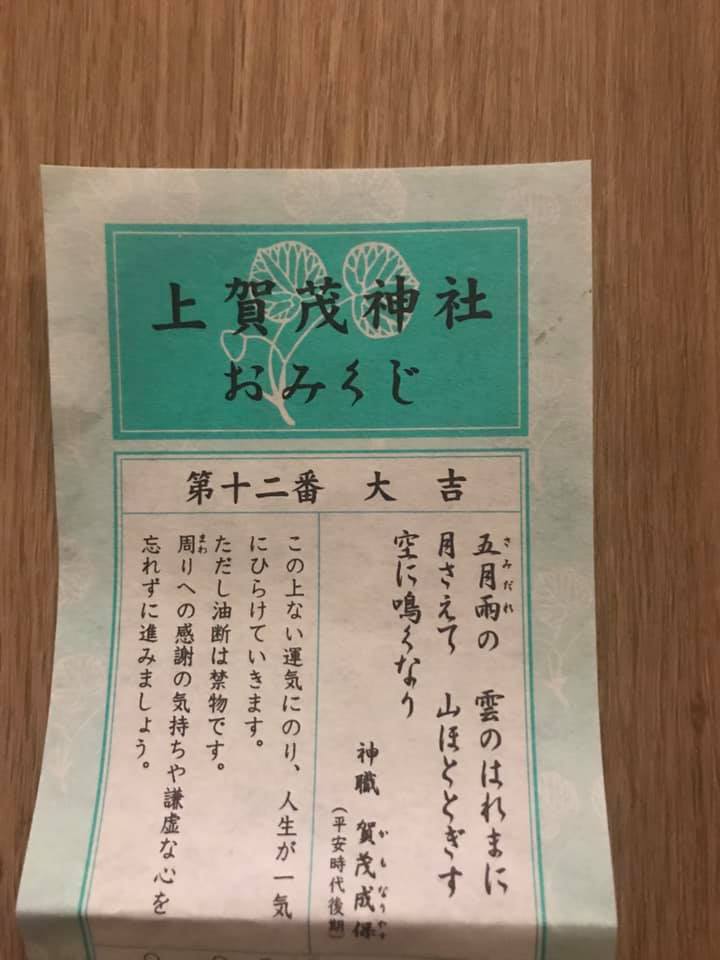 上賀茂神社
おみくじ
第十二番　大　吉
五月雨の　雲のはれまに
さみだれ
月さえて　山ほととぎす
空に鳴くなり
神職　賀茂成保
かもなりやす
（平安時代後期）
この上ない運気にのり、人生が一気
にひらけていきます。
ただし油断は禁物です。
周りへの感謝の気持ちや謙虚な心を
まわ
忘れずに進みましょう。